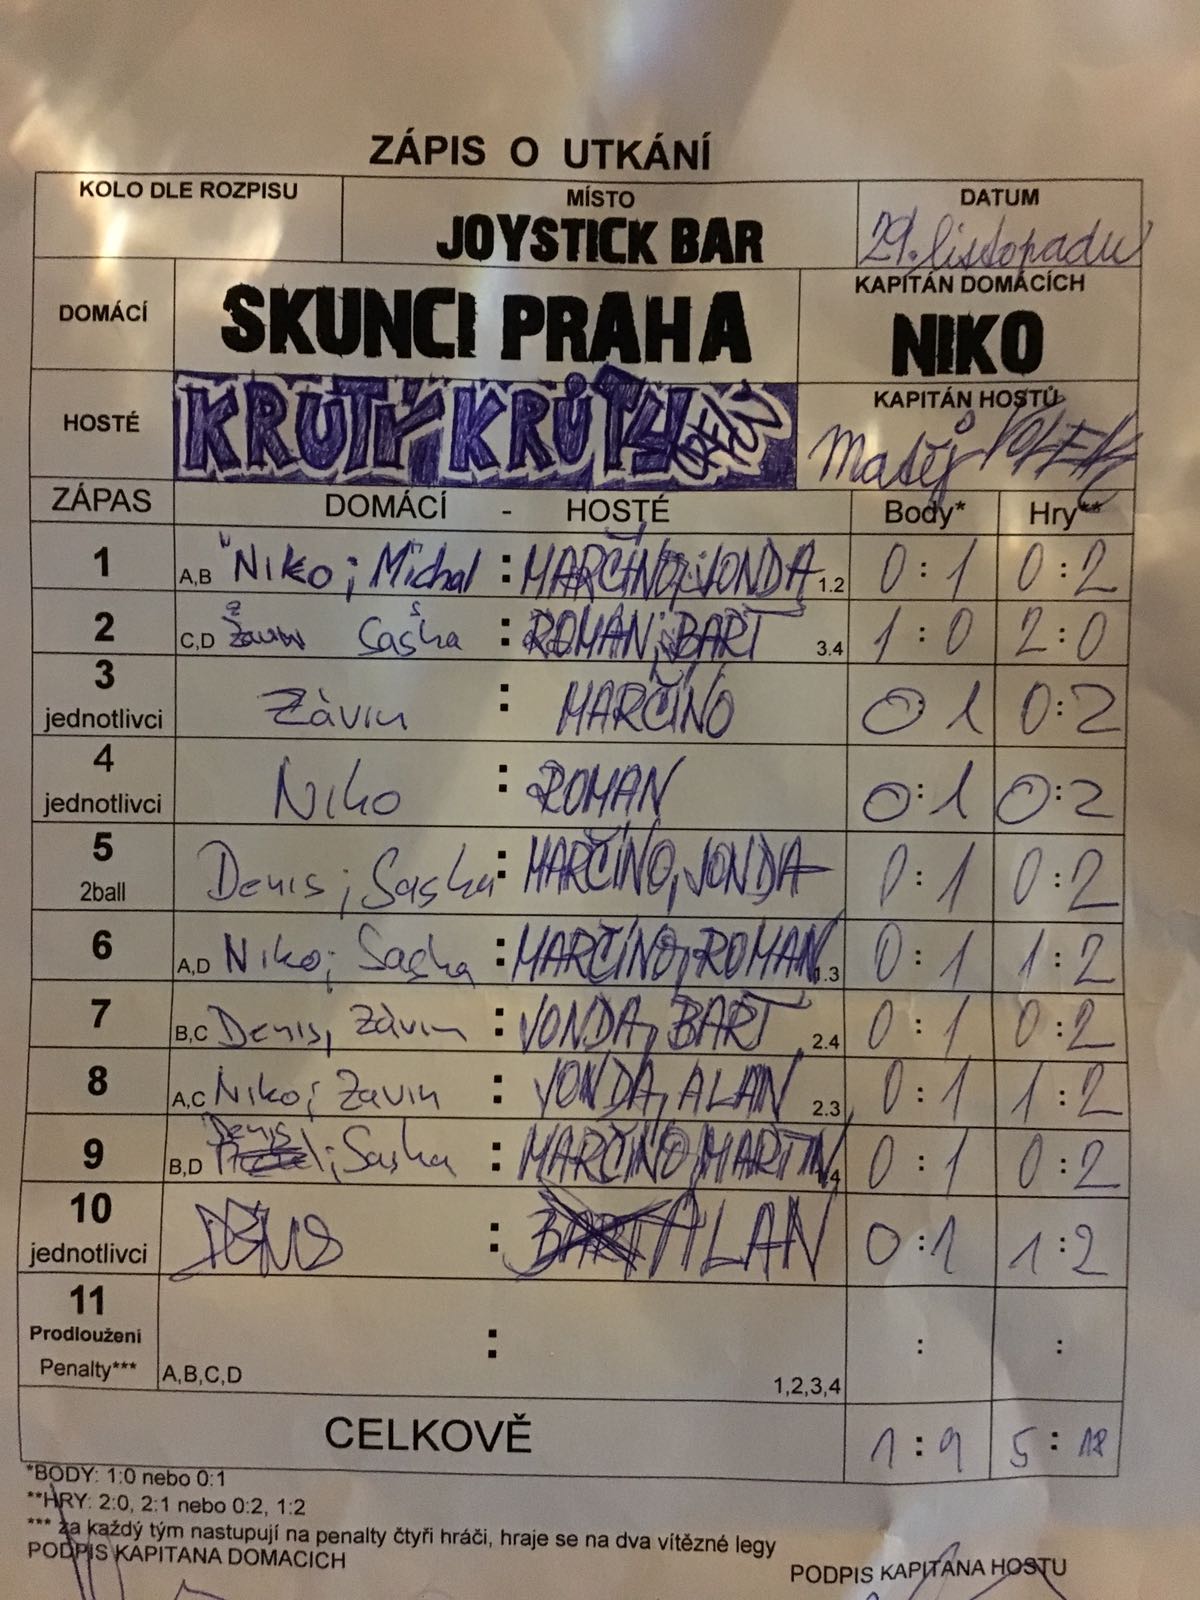 ZÁPIS O UTKÁNÍ
KOLO DLE ROZPISU
MÍSTO
JOYSTICK BAR
DATUM
29. listopadu
DOMÁCÍ
SKUNCI PRAHA
KAPITÁN DOMÁCÍCH
NIKO
HOSTÉ
KRUTÝ KRŮTY
KAPITÁN HOSTŮ
Matěj VOLEK
ZÁPAS DOMÁCÍ - HOSTÉ Body* Hry**
1 A,B Niko; Michal : MARČÍNO; VONDA 1.2 0:1 0:2
2 C,D Závin Saša : ROMAN; BART 3.4 1:0 2:0
3 jednotlivci Závin : MARČÍNO 0:1 0:2
4 jednotlivci Niko : ROMAN 0:1 0:2
5 2ball Denis; Sasha : MARČÍNO, VONDA 0:1 0:2
6 A,D Niko; Sasha : MARČÍNO, ROMAN 1.3 0:1 1:2
7 B,C Denis, Závin : VONDA, BART 2.4 0:1 0:2
8 A,C Niko; Zavin : VONDA, ALAN 2.3 0:1 1:2
9 B,D Denis; Sasha : MARČÍNO, MARTIN 0:1 0:2
10 jednotlivci : BART ALAN 0:1 1:2
11 Prodloužení Penalty*** A,B,C,D : 1,2,3,4 : :
CELKOVĚ 1:9 5:18
*BODY: 1:0 nebo 0:1
**HRY: 2:0, 2:1 nebo 0:2, 1:2
*** za každý tým nastupují na penalty čtyři hráči, hraje se na dva vítězné legy
PODPIS KAPITANA DOMACICH
PODPIS KAPITANA HOSTU